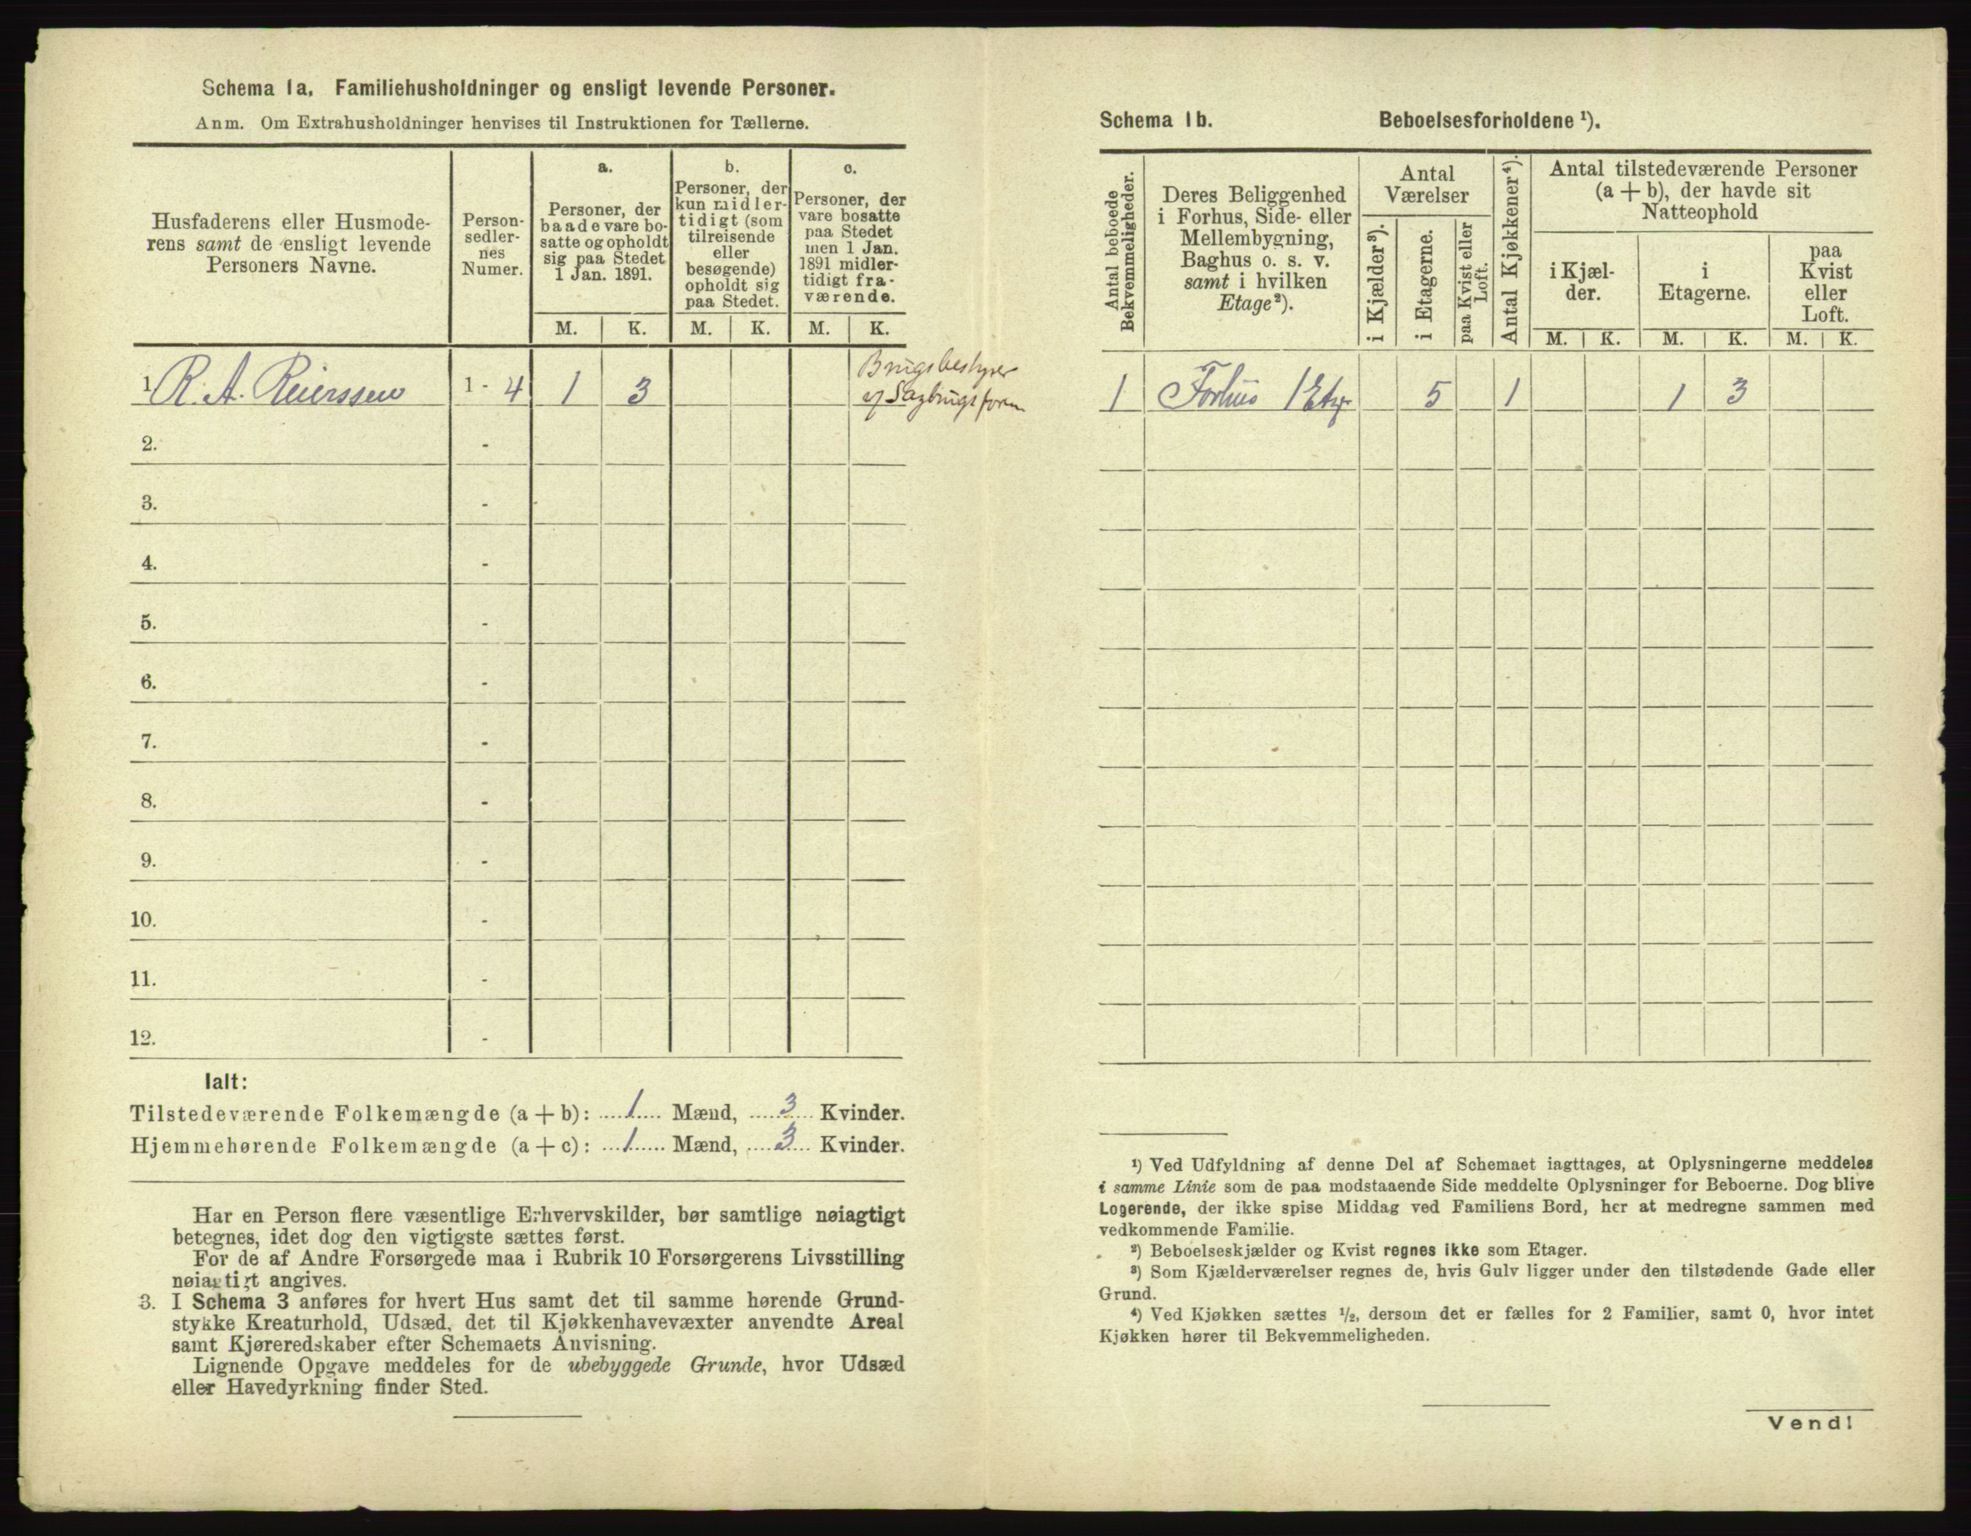 Schema 1a. Familiehusholdninger og ensligt levende Personer.
Anm. Om Extrahusholdninger henvises til Instruktionen for Tællerne.
Husfaderens eller Husmode-
rens samt de ensligt levende
Personers Navne.
Person-
sedler-
nes
Numer.
a.
Personer, der
baade vare bo-
satte og opholdt
sig paa Stedet
1 Jan. 1891.
b.
Personer, der
kun midler-
tidigt (som
tilreisende
eller
besøgende)
opholdt sig
paa Stedet.
c.
Personer, der
vare bosatte
paa Stedet
men 1 Jan.
1891 midler-
tidigt fra-
værende.
M. K. M. K. M. K.
1 R. A. Reierssen 1 - 4 1 3
Brugsbestyrer
v/ Sagbrugsforen
2. -
3. -
4. -
5. -
6. -
7. -
8. -
9. -
10. -
11. -
12. -
Ialt:
Tilstedeværende Folkemængde (a + b): 1 Mænd, 3 Kvinder.
Hjemmehørende Folkemængde (a + c): 1 Mænd, 3 Kvinder.
Har en Person flere væsentlige Erhvervskilder, bør samtlige nøiagtigt
betegnes, idet dog den vigtigste sættes først.
For de af Andre Forsørgede maa i Rubrik 10 Forsørgerens Livsstilling
nøiagtigt angives.
3. I Schema 3 anføres for hvert Hus samt det til samme hørende Grund-
stykke Kreaturhold, Udsæd, det til Kjøkkenhavevæxter anvendte Areal
samt Kjøreredskaber efter Schemaets Anvisning.
Lignende Opgave meddeles for de ubebyggede Grunde, hvor Udsæd
eller Havedyrkning finder Sted.
Schema 1b. Beboelsesforholdene ¹).
Antal beboede
Bekvemmeligheder.
Deres Beliggenhed
i Forhus, Side- eller
Mellembygning,
Baghus o. s. v.
samt i hvilken
Etage²).
Antal
Værelser
i Kjælder³).
i Etagerne.
paa Kvist eller
Loft.
Antal Kjøkkener⁴).
Antal tilstedeværende Personer
(a + b), der havde sit
Natteophold
i Kjæl-
der.
i
Etagerne.
paa
Kvist
eller
Loft.
M. K. M. K. M. K.
1 Forhus 1 Etg. 5 1 1 3
¹) Ved Udfyldning af denne Del af Schemaet iagttages, at Oplysningerne meddeles
i samme Linie som de paa modstaaende Side meddelte Oplysninger for Beboerne. Dog blive
Logerende, der ikke spise Middag ved Familiens Bord, her at medregne sammen med
vedkommende Familie.
²) Beboelseskjælder og Kvist regnes ikke som Etager.
³) Som Kjælderværelser regnes de, hvis Gulv ligger under den tilstødende Gade eller
Grund.
⁴) Ved Kjøkken sættes ½, dersom det er fælles for 2 Familier, samt 0, hvor intet
Kjøkken hører til Bekvemmeligheden.
Vend!